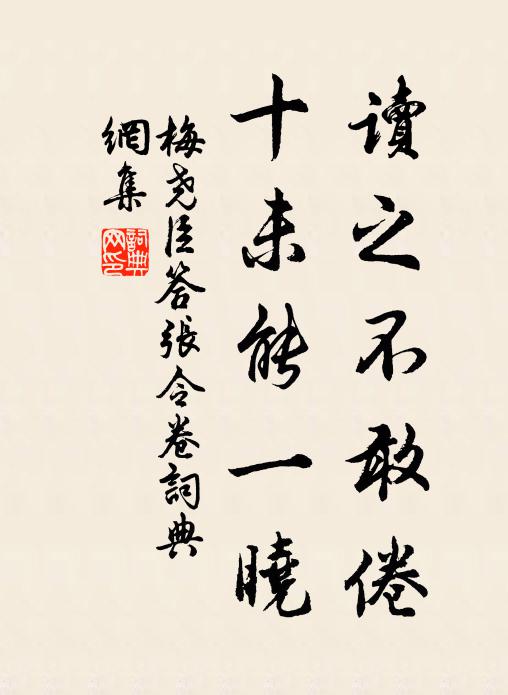 讀之不敢倦
十未能一曉
梅堯臣答張令卷詞典
網集
詞典網印